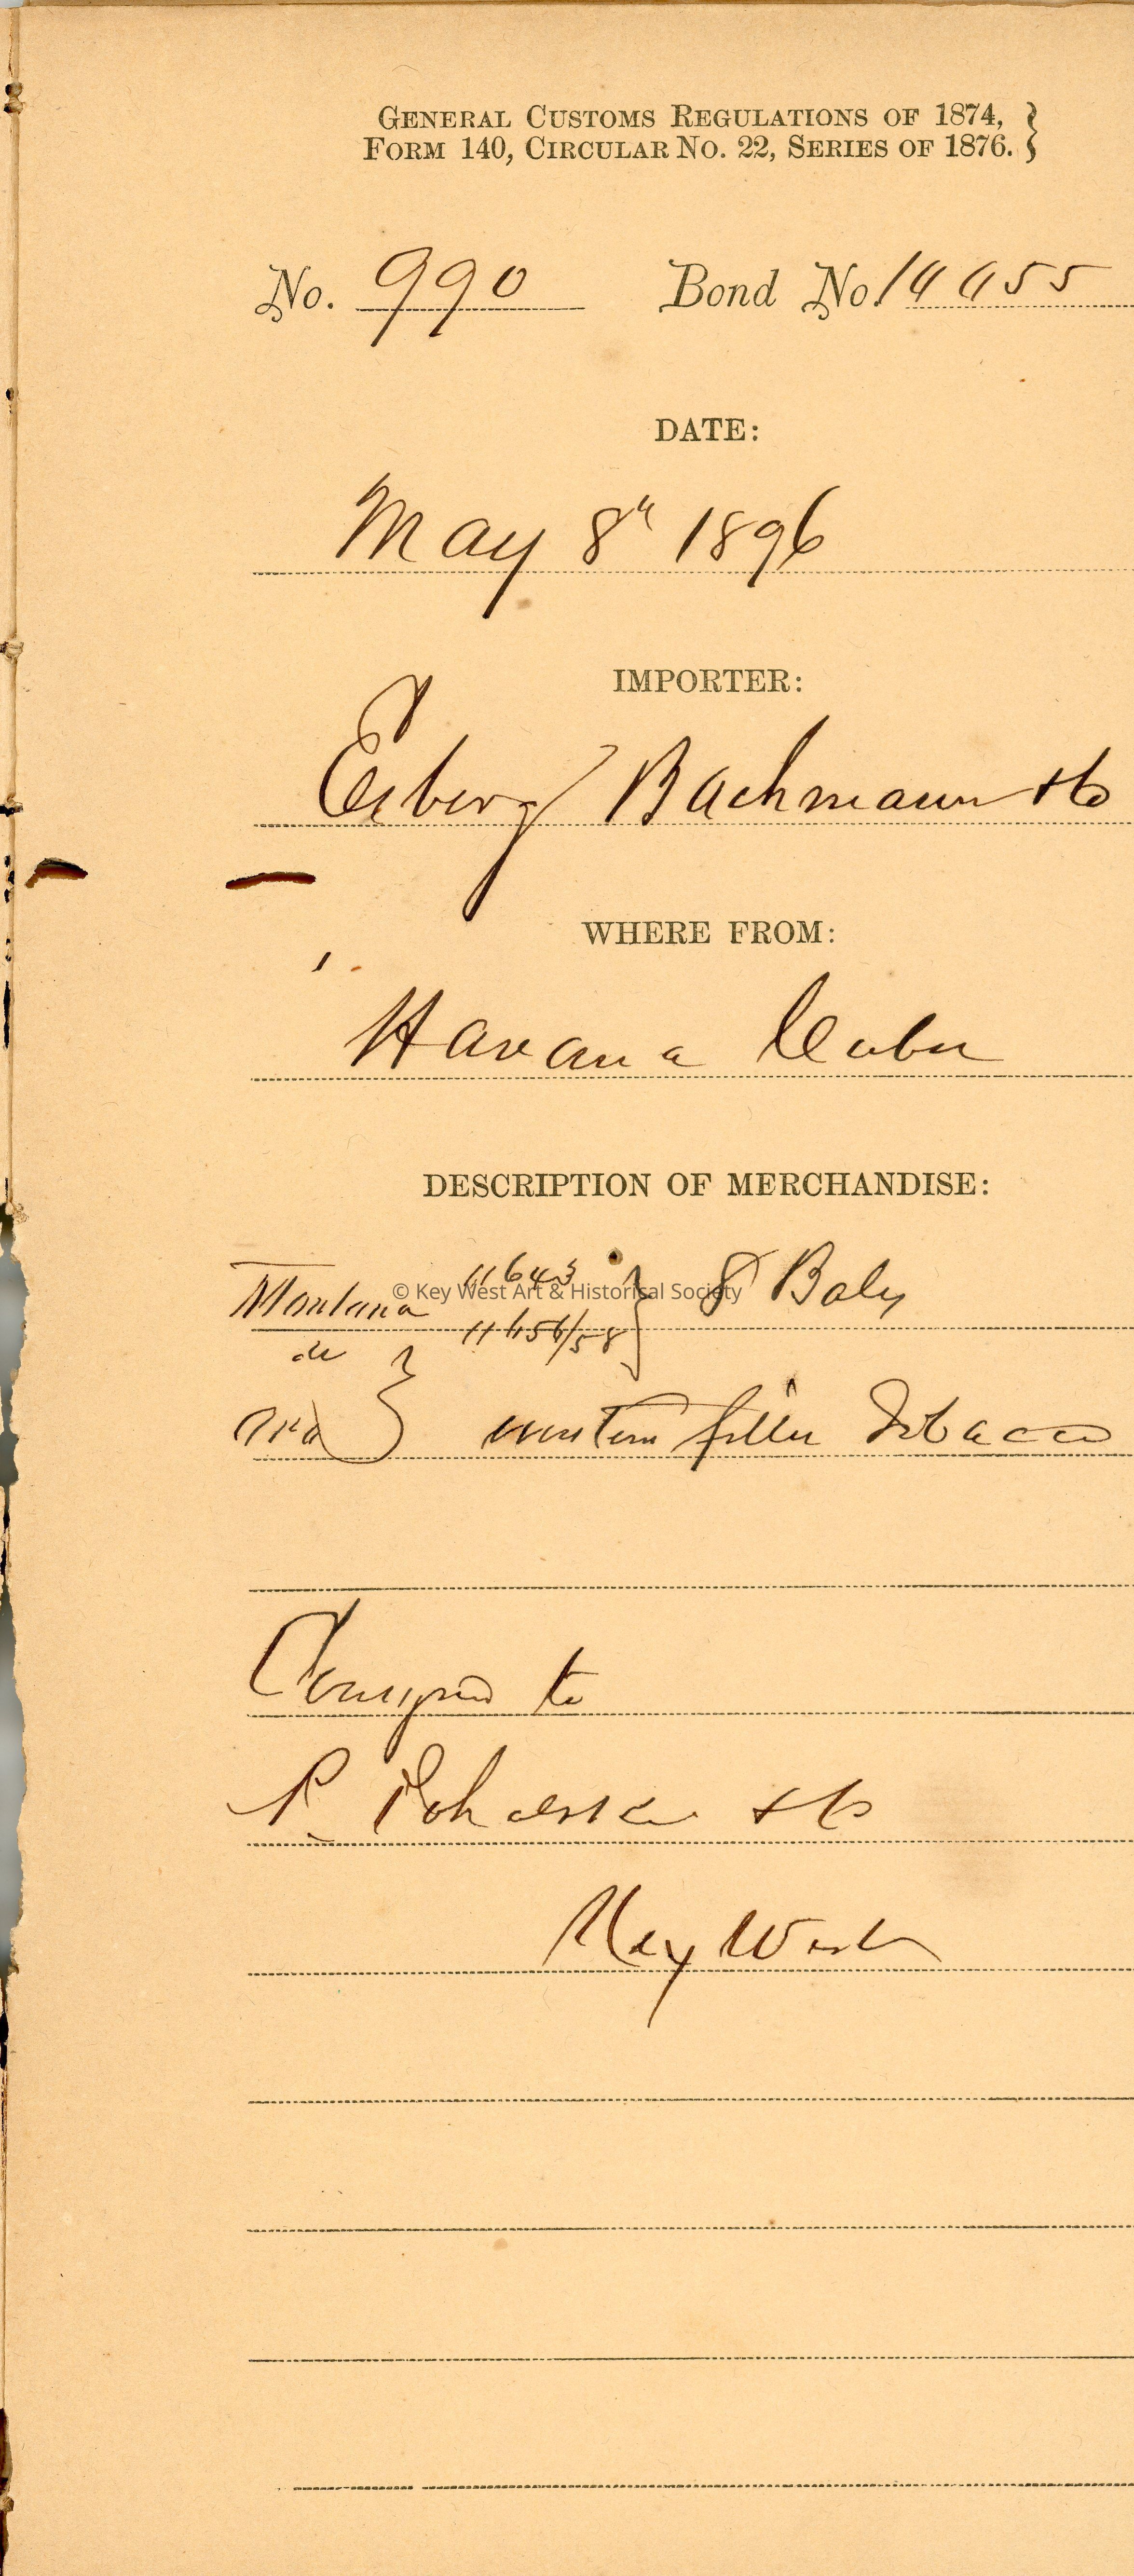 GENERAL CUSTOMS REGULATIONS OF 1874, }
FORM 140, CIRCULAR NO. 22, SERIES OF 1876. }
No. 990 Bond No. 14455
DATE:
May 8th 1896
IMPORTER:
Esberg Bachmann & Co
WHERE FROM:
Havana Cuba
DESCRIPTION OF MERCHANDISE:
Montana 11643 } 8 Bales
© Key West Art & Historical Society
de 11656/58
filler Tobacco
Consigned to
P. Pohalski & Co
Key West